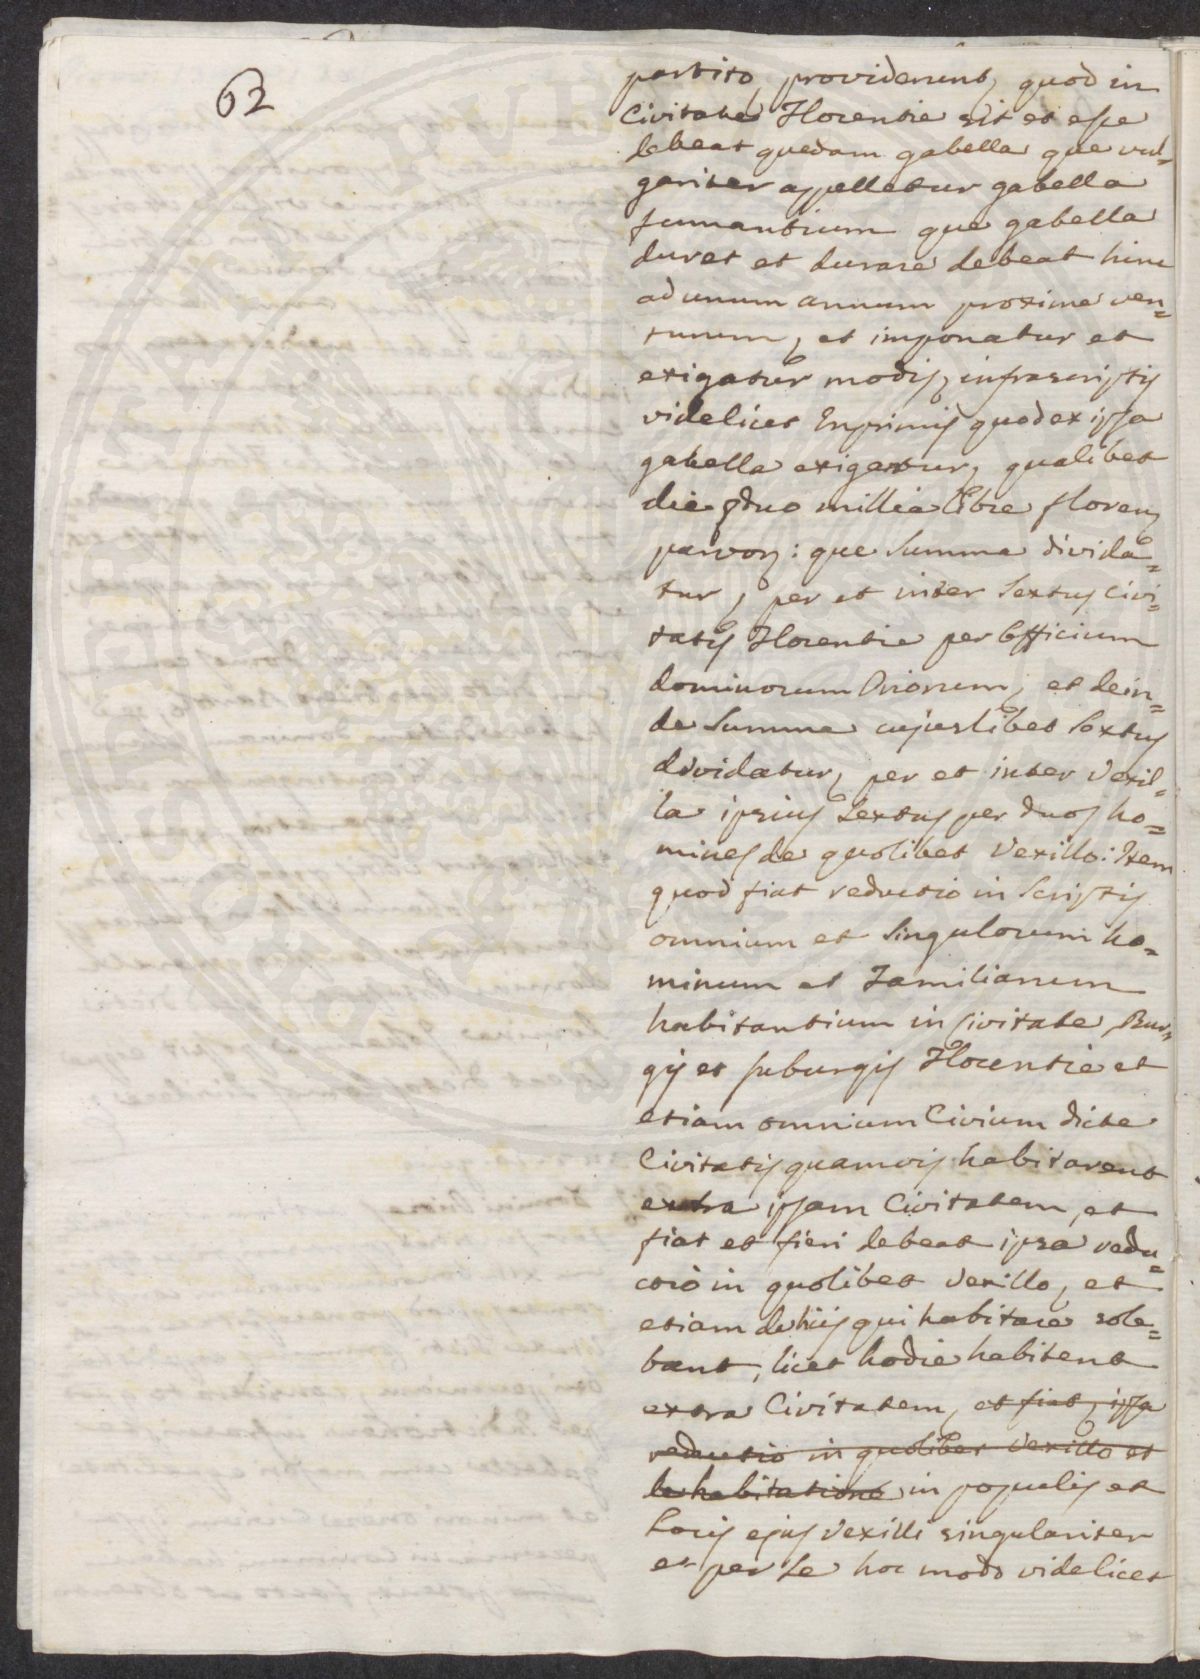 62
partito, providerunt, quod in
Civitate Florentie sit et esse
debeat quedam gabella que vul=
gariter appelletur gabella
fumantium que gabella
duret et durare debeat hinc
ad unum annum proxime ven=
turum, et imponatur et
exigatur modis, infrascriptis
videlicet Inprimis quod ex ipsa
gabella exigatur, qualibet
die duo millia libre floren,
parvor: que summa divida=
tur, per et inter Sextus Civi=
tatis Florentie per Officium
dominorum Priorum, et dein=
de Summa cujuslibet Sextus
dividatur, per et inter Vexil=
la ipsius Sextus per duos ho=
mines de quolibet Vexillo: Item
quod fiat reductio in Scriptis
omnium et Singulorum ho=
minum et Familiarum
habitantium in Civitate, Bur=
gis et suburgis Florentie et
etiam omnium Civium dicte
Civitatis quamvis habitarent
extra ipsam Civitatem, et
fiat et fieri debeat ipsa redu=
ctio in quolibet Vexillo, et
etiam de hiis qui habitare sole=
bant, licet hodie habitent
extra Civitatem, et fiat, ipsa
reductio in quolibet Vexillo et
de habitatione in populis et
Locis ejus Vexilli singulariter
et per se hoc modo videlicet